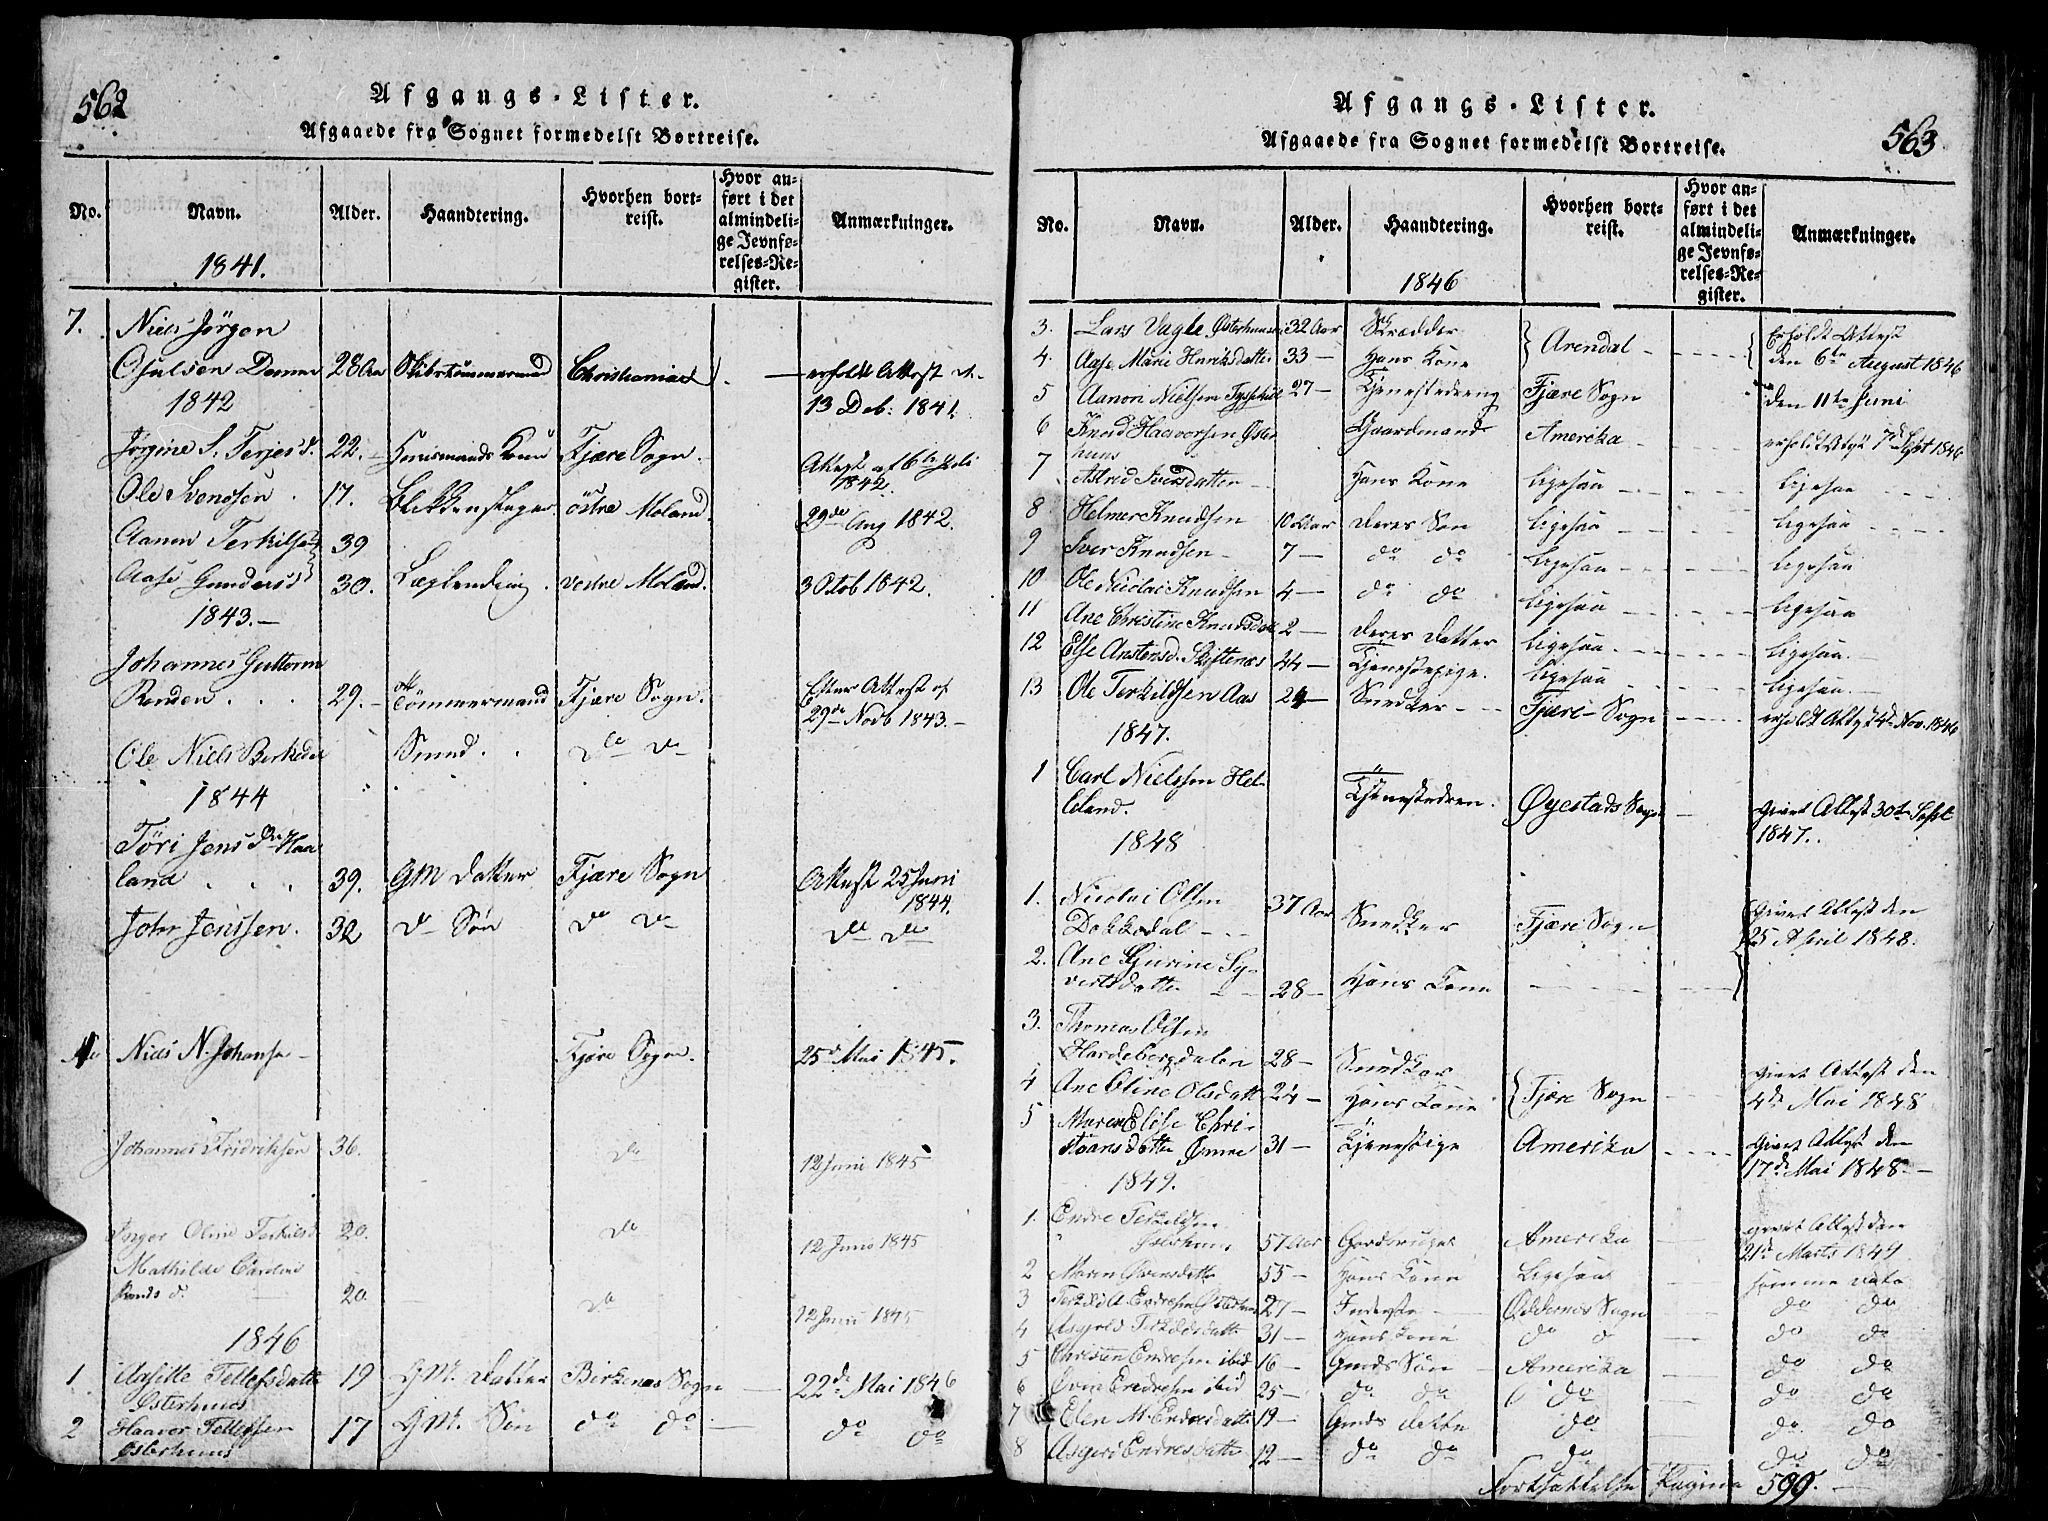 562
Afgangs-Lister.
Afgaaede fra Sognet formedelst Bortreise.
No.
Navn.
Alder.
Haandtering.
Hvorhen bort-
reist.
Hvor an-
ført i det
almindeli-
ge Jevnfø-
relses-Re-
gister.
Anmærkninger.
1841.
7. Niels Jørgen
Osulsen Dømmen 28 Aar Skibstømmermand Christiania erholdt Attest d.
13 Deb: 1841.
1842
Jørgine S. Terjesd. 22. Huusmands Kone Fjære Sogn. Attest af 6te Juli
1842.
Ole Svendsen 17. Blikkenslager østre Moland. 29de Aug 1842.
Aanen Terkilsen 39
Aase Gundersd 30. Læglending. vestre Moland. 3 Octob 1842.
1843.
Johannes Guttorm
Renden 29. Tømmermand Fjære Sogn. Efter Attest af
29de Novb 1843.
Ole Niels Berkedal Smed. do do
1844
Tøri Jens dr Haa
land 39. GM datter Fjære Sogn Attest 25 Juni
1844.
John Jenssen. 32 do Søn do do do do
Niels N. Johanse Fjære Sogn. 25d Mai 1845.
Johannes Fridriksen 36. do 12 Juni 1845
Inger Oline Terkilsd 20. do 12 Juni 1845
Mathilde Caroline
d. 20. do 12 Juni 1845
1846
1 Aasille Tellefsdatte 19 GM. Datter Birkenæs Sogn 22de Mai 1846
Østerhuus
2 Haavor Tellefsen 17 GM. Søn do do do do
Østerhuus
563
Afgangs-Lister.
Afgaaede fra Sognet formedelst Bortreise.
No.
Navn.
Alder.
Haandtering.
Hvorhen bort-
reist.
Hvor an-
ført i det
almindeli-
ge Jevnfø-
relses-Re-
gister.
Anmærkninger.
1846
3. Lars Vagle Østerhuusen 32 Aar Skrædder Arendal Erholdt Attest
4. Aase Marie Henriksdatter 33 Hans Kone den 6te August 1846
5 Aanon Nielsen 27 Tjenestedreng Fjære Sogn den 11te Juni
6 Knud Haavorsen Øster Gaardmand Amerika erholdt Attest 7d Sept 1846
huus
7 Astrid Iversdatter Hans Kone ligesaa ligesaa
8 Helmer Knudsen 10 Aar deres Søn ligesaa ligesaa
9 Iver Knudsen 7 do do ligesaa ligesaa
10 Ole Nicolai Knudsen 4 do do ligesaa ligesaa
11 Ane Christine Knudsdatt 2 deres datter ligesaa ligesaa.
12 Else Anstensd. Skiftenæs 44 Tjenestepige. ligesaa ligesaa
13 Ole Terkildsen Aas 24 Snedker Fjære Sogn erholdt Attest 4de Nov. 1846
1847.
1 Carl Nielssen Hel-
leland. Tjenestedren. Øyestads Sogn givet Attest 30te Sept
1847.
1848
1. Nicolai Olsen 37 Aar Snedker Fjære Sogn Givet Attest den
Dokkedal 25 April 1848.
2. Ane Gurine Sy-
vertsdatter 28 Hans Kone
3. Thomas Olsen
Hardebergdalen 28 Snedker Givet Attest den
4 Ane Oline Olsdatt 24 Hans Kone Fjære Sogn 4de Mai 1848
5 Maren Elise Chri-
stiansdatte Omre 31 Tjenestpige Amerika Givet Attest den
17de Mai 1848.
1849.
1. Endre Terkeldsen
Østerhuus 57 Aar Gaardbruger Amerika givet Attest den
21d Marts 1849
2 Maren Ovensdatte 55 Hans Kone Ligesaa samme dato
3 Terkild A. Endresen Østerhuus 27 Inderste Oddernes Sogn do do
4 Asgjerd Terkildsdatte 31 Hans Kone do do do do
5 Christen Endresen ibid 16 Gmds Søn Amerika do do
6 Oven Endresen ibid 25 do do do do do
7 Elen M. Endresdatte 19 Gmds datte do do do
8 Asgjerd Endresdatte 12 do do do do do
Fortsættelse Pagina 599.